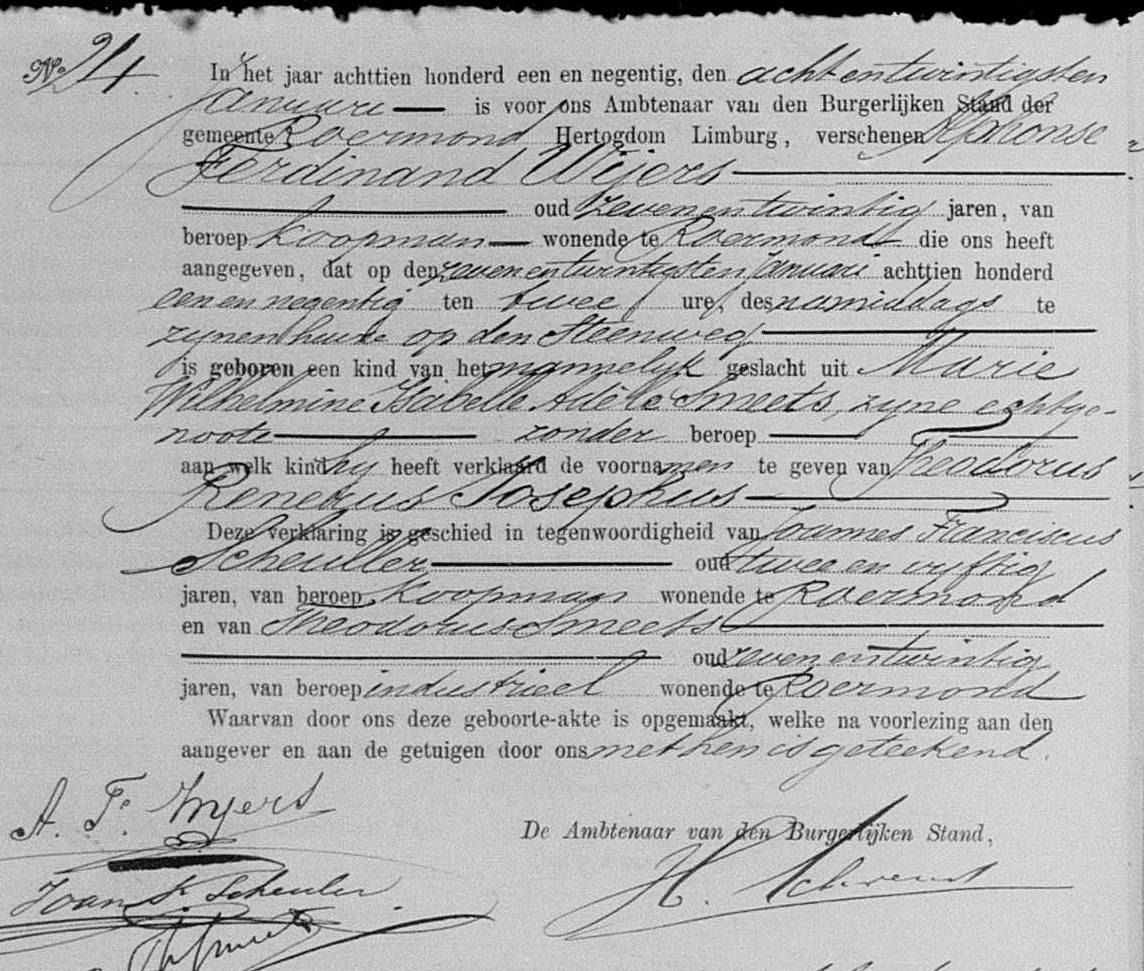 No 24.
In het jaar achttien honderd een en negentig, den achtentwintigsten
Januari is voor ons Ambtenaar van den Burgerlijken Stand der
gemeente Roermond Hertogdom Limburg, verschenen Alphonse
Ferdinand Weijers
oud zevenentwintig jaren, van
beroep koopman wonende te Roermond die ons heeft
aangegeven, dat op den zevenentwintigsten Januari achttien honderd
een en negentig ten twee ure des namiddags te
zijnen huize op den Steenweg
is geboren een kind van het mannelijk geslacht uit Marie
Wilhelmine Isabelle Adèle Smeets, zijne echtge-
noote zonder beroep
aan welk kind hij heeft verklaard de voornamen te geven van Theodorus
Renerus Josephus
Deze verklaring is geschied in tegenwoordigheid van Joannes Franciscus
Scheuller oud twee en vijftig
jaren, van beroep koopman wonende te Roermond
en van Theodorus Smeets
oud zevenentwintig
jaren, van beroep industrieel wonende te Roermond
Waarvan door ons deze geboorte-akte is opgemaakt, welke na voorlezing aan den
aangever en aan de getuigen door ons met hen is geteekend.
A. F. Weyers
De Ambtenaar van den Burgerlijken Stand,
Joan F. Scheuler
H.
Th Smeets